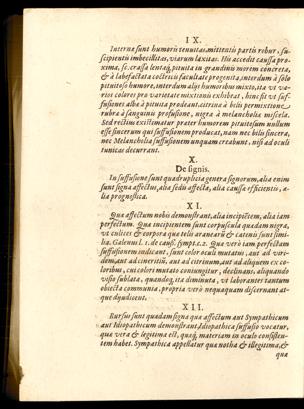 IX.
Internæ sunt humoris tenuitas, mittentis partis robur, su-
scipientis imbecillitas, viarum laxitas. His accedit caussa pro-
xima, sc. crassa lentaq́; pituita in grandinis morem concreta,
& à labefactata coctricis facultate progenita, interdum à solo
pituitoso humore, interdum alijs humoribus mixto, ita vt va-
rios colores pro varietate mixtionis exhibeat, hinc sit vt suf-
fusiones albæ à pituita prodeant, citrina à bilis permixtione
rubra à sanguinis profusione, nigra à melancholiæ miscela.
Sed rectius existimatur præter humorem pituitosum nullum
esse sincerum qui suffusionem producat, nam nec bilis sincera,
nec Melancholia suffusionem unquam creabunt, nisi ad oculi
tunicas decurrant.
X.
De signis.
In suffusione sunt quadruplicia genera signorum, alia enim
sunt signa affectus, alia sedis affecta, alia caussæ efficientis, a-
lia prognostica.
XI.
Quæ affectum nobis demonstrant, alia incipientem, alia iam
perfectum. Quæ incipientem sunt corpuscula quædam nigra,
vt culices & corpora quæ telis aranearū & catenis sunt simi-
lia. Galenus l. 1. de cauß. sympt. c. 2. Quæ verò iam perfectam
suffusionem indicant, sunt color oculi mutatum, aut ad viri-
dem, aut ad cineritiū, aut ad citrinum, aut ad aliquem ex co-
loribus, cui colores mutato coniungitur, declinans, aliquando
visio sublata, quandoq́; ita diminuta, vt laborantes tantum
obiecta communia, propria verò nequaquam discernant at-
que dijudicent.
XII.
Rursus sunt quædam signa quæ affectum aut Sympathicum
aut Idiopathicum demonstrant, Idiopathica suffusio vocatur,
quæ vera & legitima est, quæq́; materiam in oculo consisten-
tem habet. Sympathica appellatur quæ notha & illegitima, &
quæ